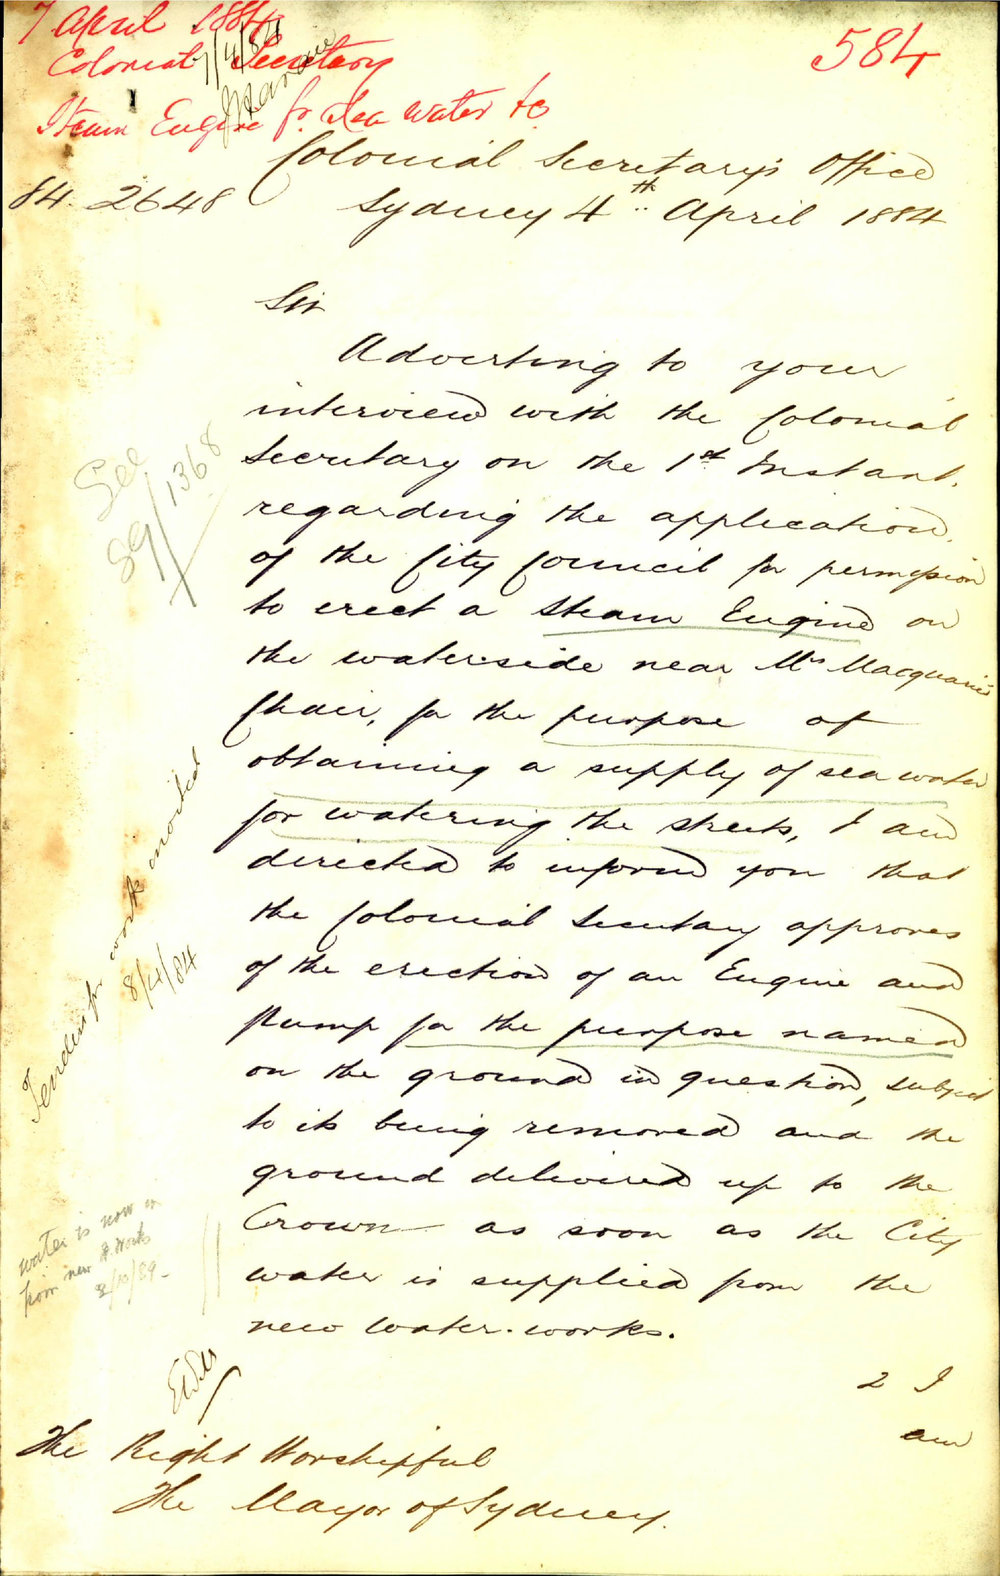 7 April 1884
584
Colonial Secretary
7/4/84
Steam Engine for Sea Water &c
Colonial Secretary's Office
84. 2648
Sydney 4th April 1884
Sir
Adverting to your
interview with the Colonial
Secretary on the 1st Instant.
regarding the application
of the City Council for permission
to erect a Steam Engine on
the waterside near Mrs Macquarie's
Chair, for the purpose of
obtaining a supply of sea water
for watering the streets, I am
directed to inform you that
the Colonial Secretary approves
of the erection of an Engine and
Pump for the purpose named
on the ground in question, subject
to its being removed and the
ground delivered up to the
Crown as soon as the City
water is supplied from the
new water-works.
2 I
am
The Right Worshipful
The Mayor of Sydney.
See
89/1368
Tenders for work invited
8/4/84
water is now on
from new W. Works
2/10/89